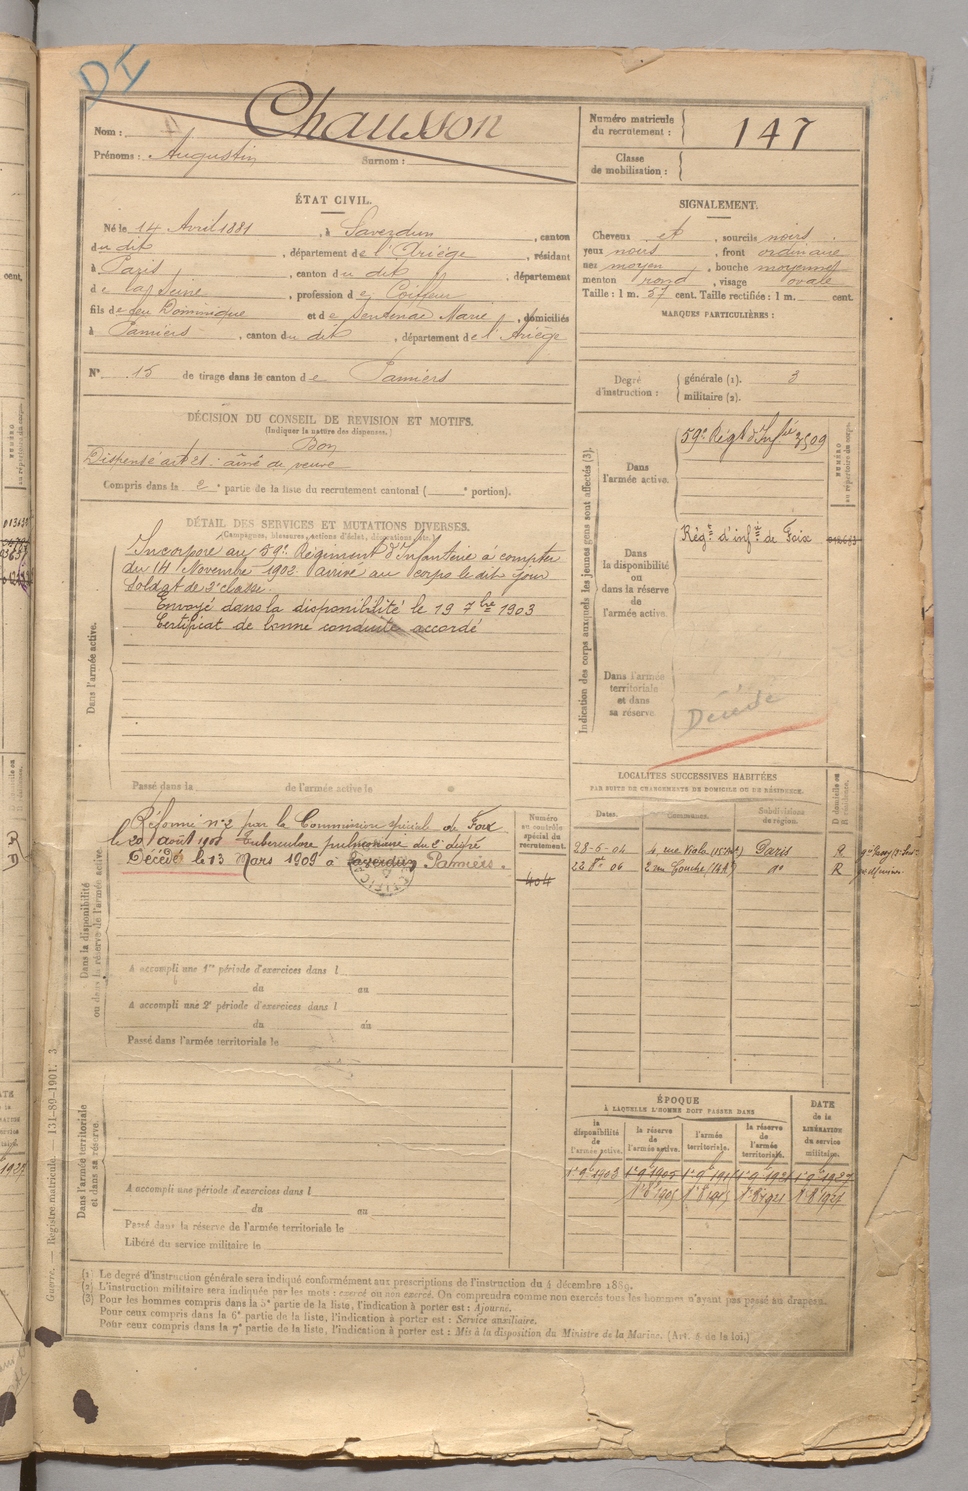 DI
Nom : Chausson
Prénoms : Augustin Surnom :
Numéro matricule du recrutement : 147
Classe de mobilisation :
ÉTAT CIVIL.
Né le 14 Avril 1881, à Saverdun, canton
du dit, département de l'Ariège, résidant
à Paris, canton du dit, département
de la Seine, profession de Coiffeur
fils de feu Dominique et de Sentenac Marie, domiciliés
à Pamiers, canton du dit, département de l'Ariège
N° 15 de tirage dans le canton de Pamiers
SIGNALEMENT.
Cheveux et, sourcils noirs
yeux noirs, front ordinaire
nez moyen, bouche moyenne
menton rond, visage ovale
Taille : 1 m. 57 cent. Taille rectifiée : 1 m. cent.
MARQUES PARTICULIÈRES :
Degré d'instruction : générale (1). 3
militaire (2).
DÉCISION DU CONSEIL DE REVISION ET MOTIFS.
(Indiquer la nature des dispenses.)
Bon
Dispensé art 21 : aîné de veuve
Compris dans la 2e partie de la liste du recrutement cantonal ( e portion).
DÉTAIL DES SERVICES ET MUTATIONS DIVERSES.
(Campagnes, blessures, actions d'éclat, décorations, etc.)
Dans l'armée active.
Incorporé au 59e Régiment d'Infanterie à compter
du 14 Novembre 1902 arrivé au corps le dit jour
Soldat de 2e classe.
Envoyé dans la disponibilité le 19 7bre 1903
Certificat de bonne conduite accordé
Passé dans la de l'armée active le
Indication des corps auxquels les jeunes gens sont affectés (3).
NUMÉRO au répertoire du corps.
Dans l'armée active.
59e Régt d'Infie 3509
Dans la disponibilité ou dans la réserve de l'armée active.
Régt d'infie de Foix
Dans l'armée territoriale et dans sa réserve.
Décédé
Dans la disponibilité ou dans la réserve de l'armée active.
Numéro au contrôle spécial du recrutement.
404
Réformé n° 2 par la Commission spéciale de Foix
le 20 août 1908 Tuberculose pulmonaire du 2e degré
Décédé le 13 Mars 1909 à Saverdun Pamiers.
A accompli une 1re période d'exercices dans l
du au
A accompli une 2e période d'exercices dans l
du au
Passé dans l'armée territoriale le
LOCALITÉS SUCCESSIVES HABITÉES
PAR SUITE DE CHANGEMENTS DE DOMICILE OU DE RÉSIDENCE.
Dates. Communes. Subdivisions de région. D domicile ou R résidence.
28-6-04 Paris R
22 8t 06 do R
Dans l'armée territoriale et dans sa réserve.
A accompli une période d'exercices dans l
du au
Passé dans la réserve de l'armée territoriale le
Libéré du service militaire le
ÉPOQUE
À LAQUELLE L'HOMME DOIT PASSER DANS
la disponibilité de l'armée active. la réserve de l'armée active. l'armée territoriale. la réserve de l'armée territoriale.
DATE de la LIBÉRATION du service militaire.
(1) Le degré d'instruction générale sera indiqué conformément aux prescriptions de l'instruction du 4 décembre 1889.
(2) L'instruction militaire sera indiquée par les mots : exercé ou non exercé. On comprendra comme non exercés tous les hommes n'ayant pas passé au drapeau.
(3) Pour les hommes compris dans la 5e partie de la liste, l'indication à porter est : Ajourné.
Pour ceux compris dans la 6e partie de la liste, l'indication à porter est : Service auxiliaire.
Pour ceux compris dans la 7e partie de la liste, l'indication à porter est : Mis à la disposition du Ministre de la Marine. (Art. 4 de la loi.)
Guerre. — Registre matricule. 131-89-1901. 3